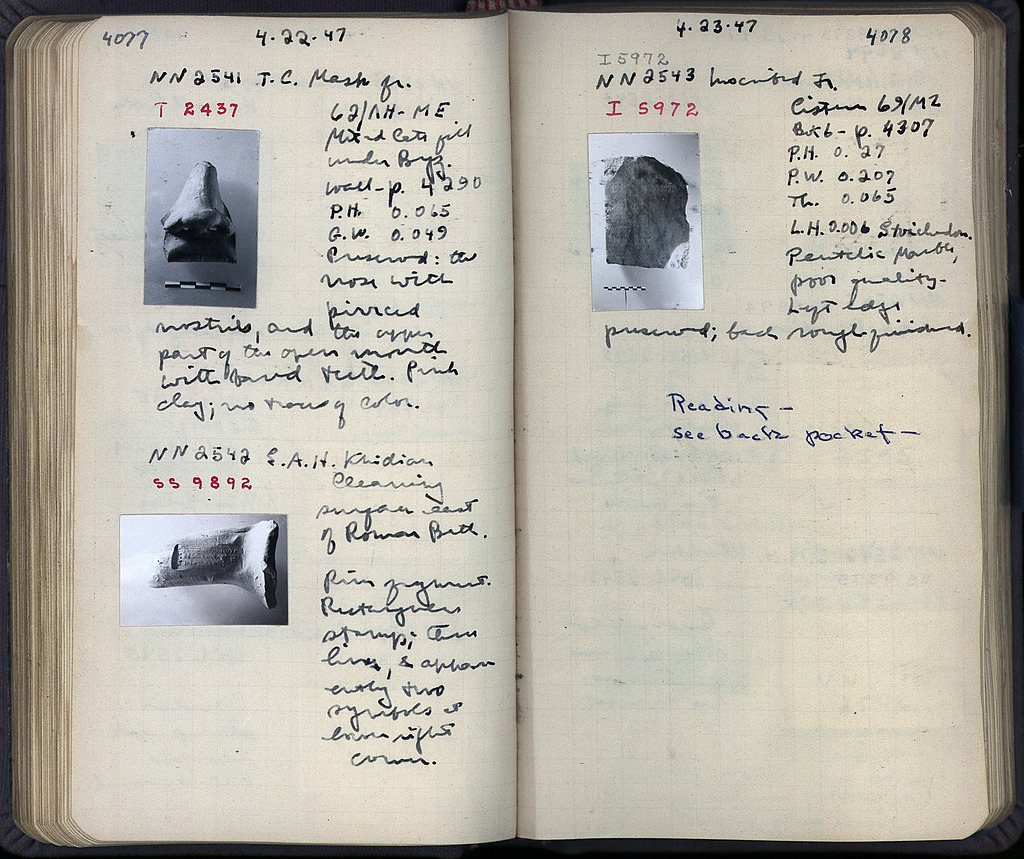 4077
4.22.47
NN 2541 T.C. Mask fr.
T 2437
62/ΛH-ME
Mixed late fill
under Byz.
wall-p. 4290
P.H. 0.065
G.W. 0.049
Preserved: the
nose with
pierced
nostrils, and the upper
part of the open mouth
with teeth. Pink
clay; no trace of color.
NN 2542 S.A.H. Knidian
SS 9892
Cleaning
surface east
of Roman Bath.
Rim fragment.
Rectangular
stamp; three
lines, & appar
ently two
symbols at
lower right
corner.
4.23.47
4078
I 5972
NN 2543 Inscribed Fr.
I 5972
Cistern 69/ME
Bx6- p. 4307
P.H. 0.27
P.W. 0.207
Th. 0.065
L.H. 0.006 Stoichedon.
Pentelic Marble,
poor quality-
Left edge
preserved; back rough finished.
Reading -
see back pocket -